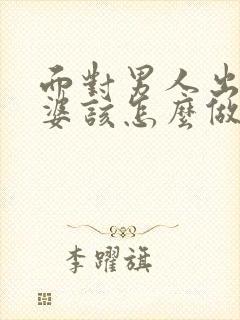 面對男人出
婆該怎麼做
李躍旗